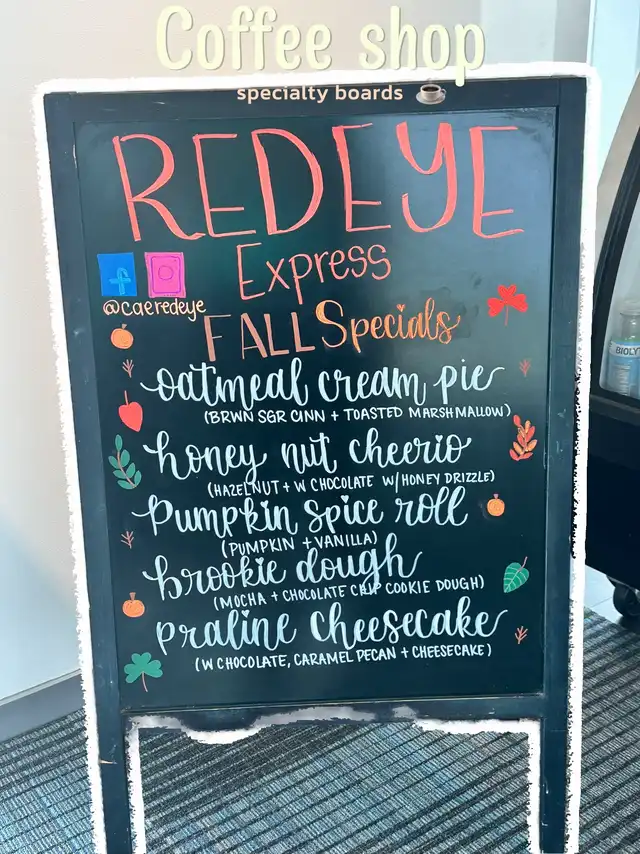 Coffee shop
specialty boards
REDEYE
Express
@caeredeye
FALL Specials
oatmeal cream pie
(BRWN SGR CINN + TOASTED MARSHMALLOW)
honey nut cheerio
(HAZELNUT + W CHOCOLATE W/HONEY DRIZZLE)
Pumpkin spice roll
(PUMPKIN + VANILLA)
brookie dough
(MOCHA + CHOCOLATE CHIP COOKIE DOUGH)
praline cheesecake
(W CHOCOLATE, CARAMEL PECAN + CHEESECAKE)
BIOLY